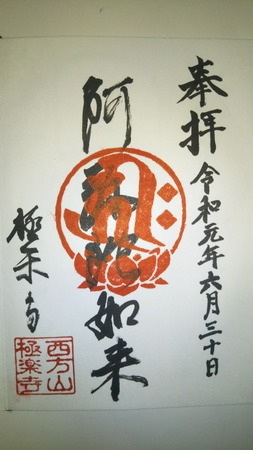 奉拝
令和元年六月三十日
阿弥陀如来
極楽寺
西方山
極楽寺